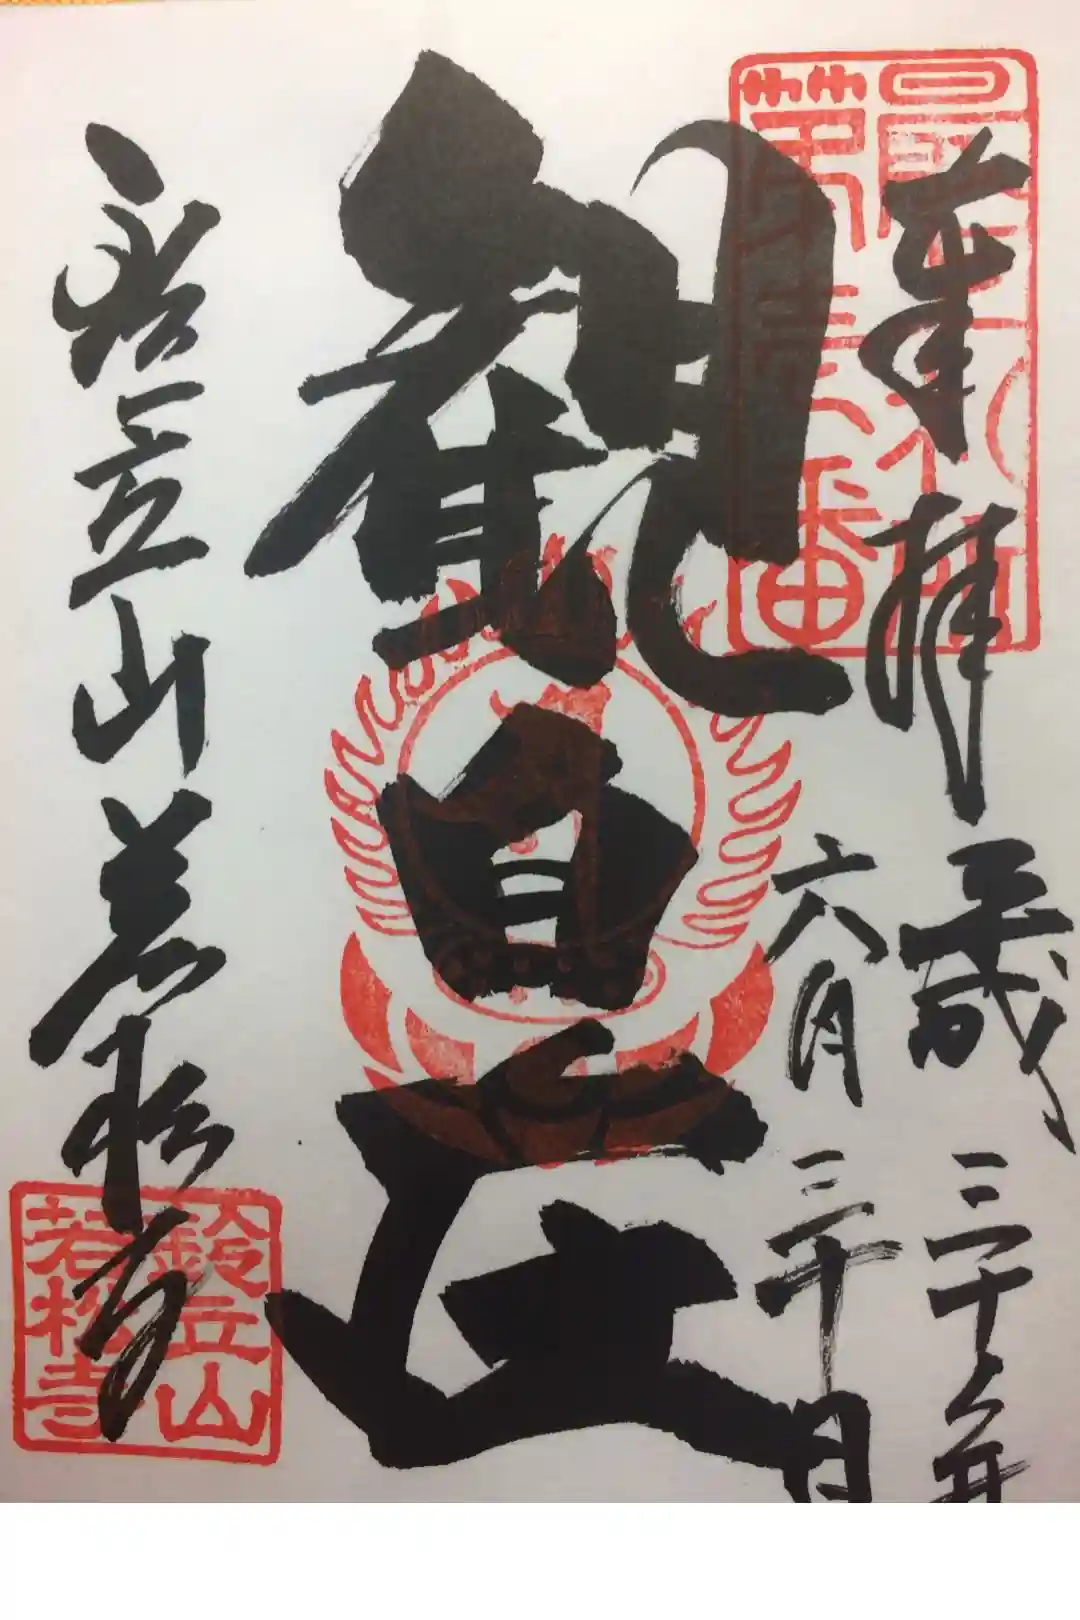 奉拝
平成三十年
六月三十日
観自在
鈴立山若松寺
鈴立山
若松寺